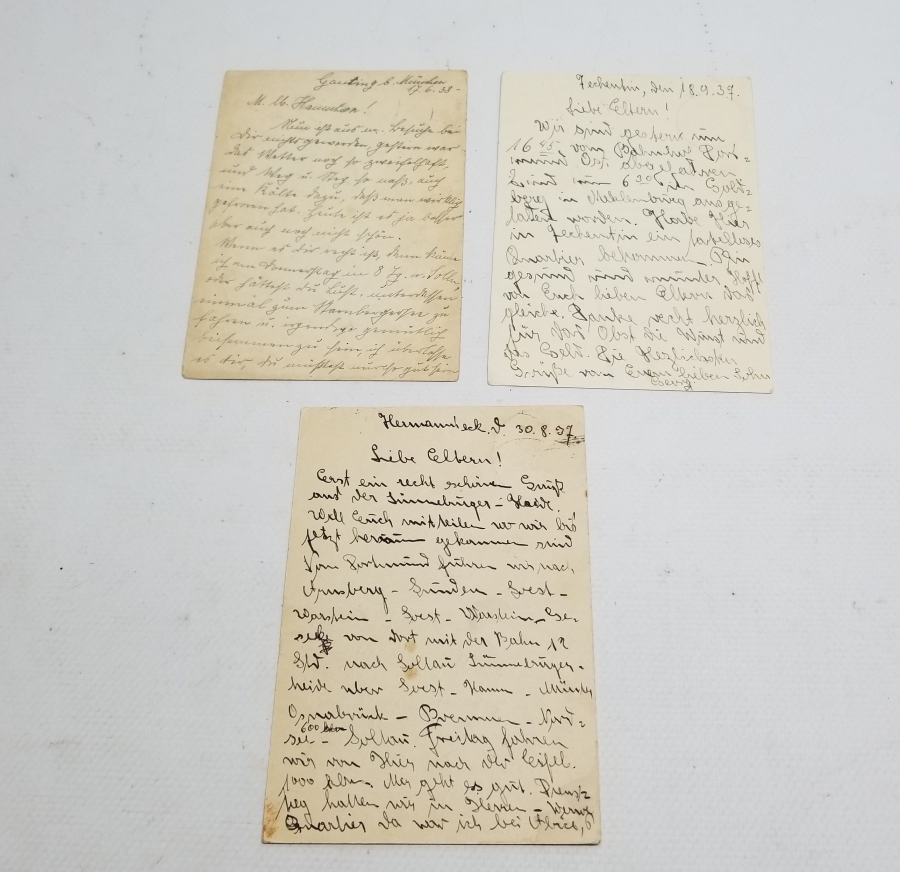 Gauting b. München
17.6.38-
M. lb. Hannchen!
Nun ist aus m. Besuche bei
Dir nichts geworden, gestern war
das Wetter noch so zweifelhaft,
und Weg u. Steg so naß, auch
eine Kälte dazu, daß man wirklich
gefroren hat. Heute ist es ja besser
aber auch noch nicht schön.
Wenn es dir recht ist, dann käme
ich am Donnerstag in 8 Tg.
oder hättest du Lust, unterdessen
einmal zum Starnbergersee zu
fahren u. irgendwo gemütlich
beisammen zu sein, ich überlasse
es dir, du müßtest nur so gut sein
Techentin, den 18.9.37.
Liebe Eltern!
Wir sind gestern um
16 45 vom Bahnhof Dort-
mund Ost abgefahren.
Sind um 6 30 in Gold=
berg in Meklenburg ausge-
laden worden. Habe hier
in Techentin ein tadelloses
Quartier bekommen. Bin
gesund und munter Hoffe
von Euch lieben Eltern das
gleiche. Danke recht herzlich
für das Obst die Wurst und
das Geld. Die Herzlichsten
Grüße von Eurem lieben Sohn
Georg
Hermann 30.8.37.
Liebe Eltern!
Erst ein recht schönen Gruß
aus der Lünneburger-Heide.
Will Euch mitteilen wo wir bis
jetzt herum gekommen sind
Von Dortmund fuhren wir nach
Arnsberg - Sunden - Soest -
Warstein - Soest - Warstein - Ge-
seke von dort mit der Bahn 12
Std. nach Soltau Lünneburger-
heide über Soest - Hamm - Münster
Osnabrück - Bremmen - Nord=
see - Soltau. Freitag fahren
600 km
wir von Hier nach der Eifel.
1000 klm. Mir geht es gut. Diens=
teg hatten wir in Herren -
Quartier da war ich bei